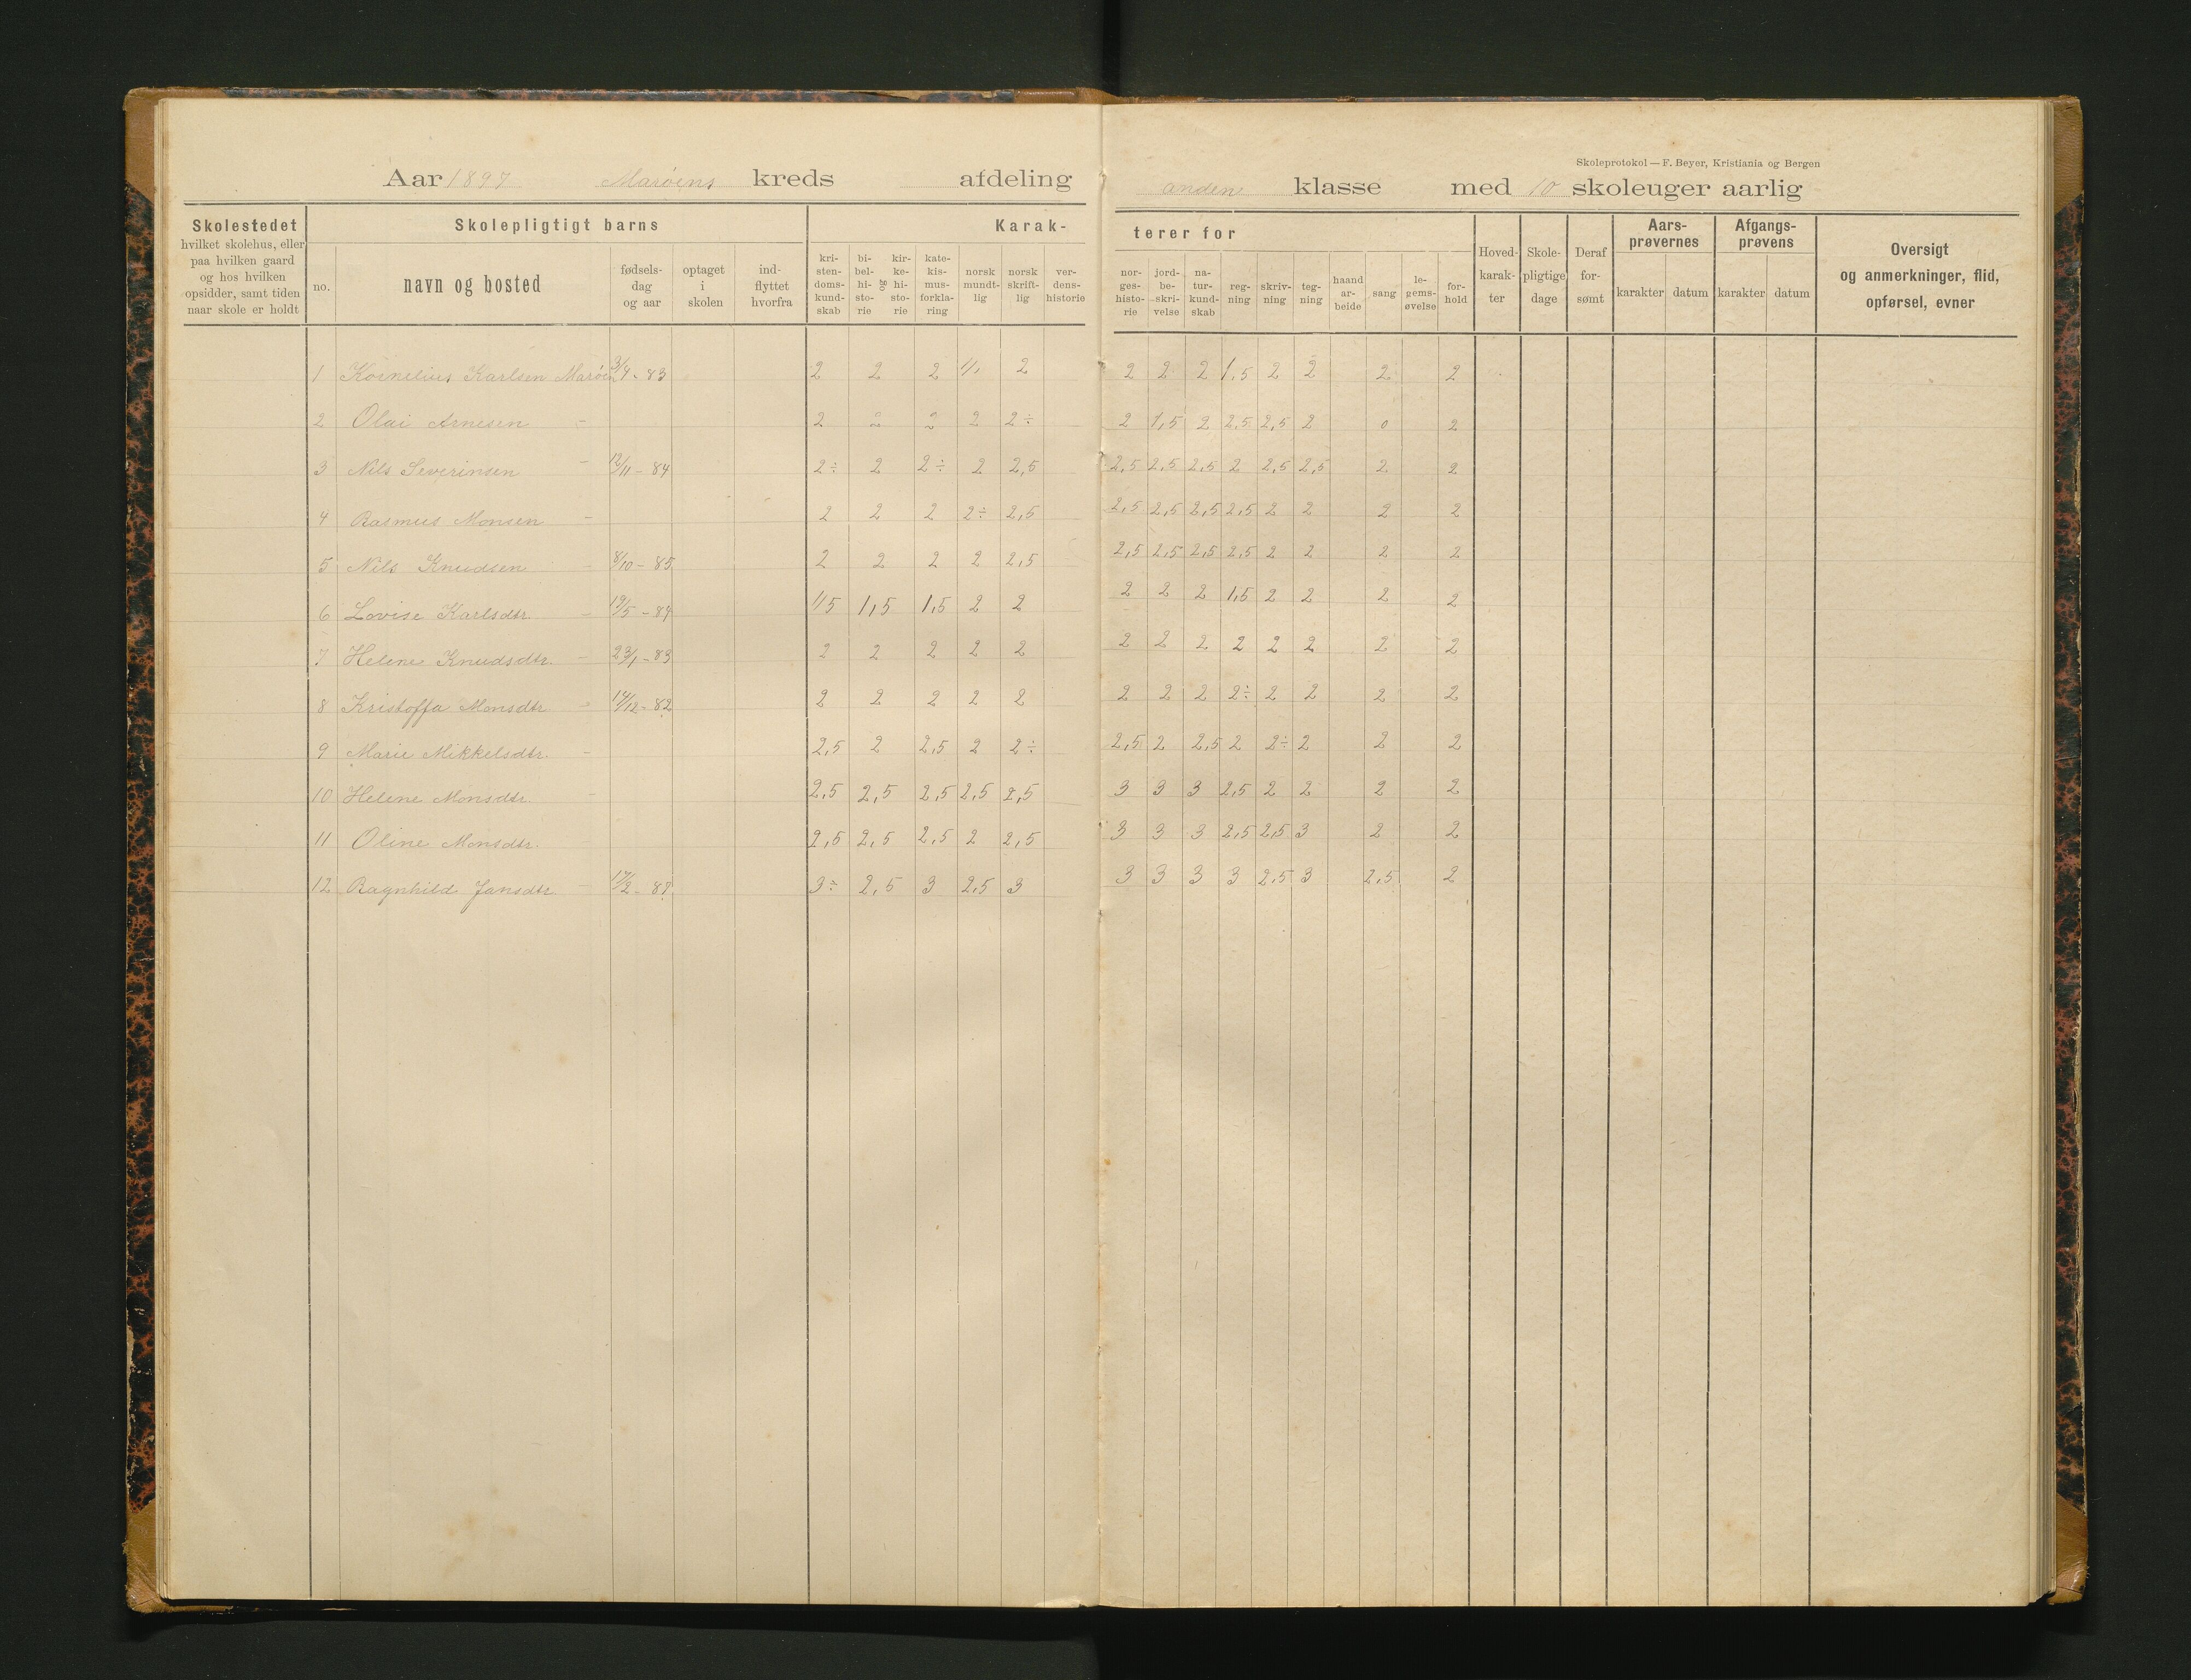 Skoleprotokol — F. Beyer, Kristiania og Bergen
Aar 1897 Marøens kreds afdeling anden klasse med 10 skoleuger aarlig
Skolestedet
hvilket skolehus, eller
paa hvilken gaard
og hos hvilken
opsidder, samt tiden
naar skole er holdt
Skolepligtigt barns
no.
navn og bosted
fødsels-
dag
og aar
optaget
i
skolen
ind-
flyttet
hvorfra
Karak-
kri-
sten-
doms-
kund-
skab
bi-
bel-
hi-
sto-
rie
og
kir-
ke-
hi-
sto-
rie
kate-
kis-
mus-
forkla-
ring
norsk
mundt-
lig
norsk
skrift-
lig
ver-
dens-
historie
terer for
nor-
ges-
histo-
rie
jord-
be-
skri-
velse
na-
tur-
kund-
skab
reg-
ning
skriv-
ning
teg-
ning
haand
ar-
beide
sang
le-
gems-
øvelse
for-
hold
Hoved-
karak-
ter
Skole-
pligtige
dage
Deraf
for-
sømt
Aars-
prøvernes
karakter datum
Afgangs-
prøvens
karakter datum
Oversigt
og anmerkninger, flid,
opførsel, evner
1 Kornelius Karlsen Marøen 3/4 - 83 2 2 2 2 2 2 2 1,5 2 2 2 2
2 Olai Arnesen - 2 2 2 2 2÷ 2 1,5 2 2,5 2,5 2 0 2
3 Nils Severinsen - 12/11 - 84 2÷ 2 2÷ 2 2,5 2,5 2,5 2,5 2 2,5 2,5 2 2
4 Rasmus Monsen - 2 2 2 2÷ 2,5 2,5 2,5 2,5 2,5 2 2 2 2
5 Nils Knudsen - 8/10 - 85 2 2 2 2 2,5 2,5 2,5 2,5 2,5 2 2 2 2
6 Lovise Karlsdtr. - 19/5 - 84 1,5 1,5 1,5 2 2 2 2 2 1,5 2 2 2 2
7 Helene Knudsdtr. - 23/1 - 83 2 2 2 2 2 2 2 2 2 2 2 2 2
8 Kristoffa Monsdtr. - 14/12 - 82 2 2 2 2 2 2 2 2 2÷ 2 2 2 2
9 Marie Mikkelsdtr. - 2,5 2 2,5 2 2÷ 2,5 2 2,5 2 2÷ 2 2 2
10 Helene Monsdtr. - 2,5 2,5 2,5 2,5 2,5 3 3 3 2,5 2 2 2 2
11 Oline Monsdtr. 2,5 2,5 2,5 2 2,5 3 3 3 2,5 2,5 3 2 2
12 Ragnhild Jansdtr. - 3÷ 2,5 3 2,5 3 3 3 3 3 2,5 3 2,5 2